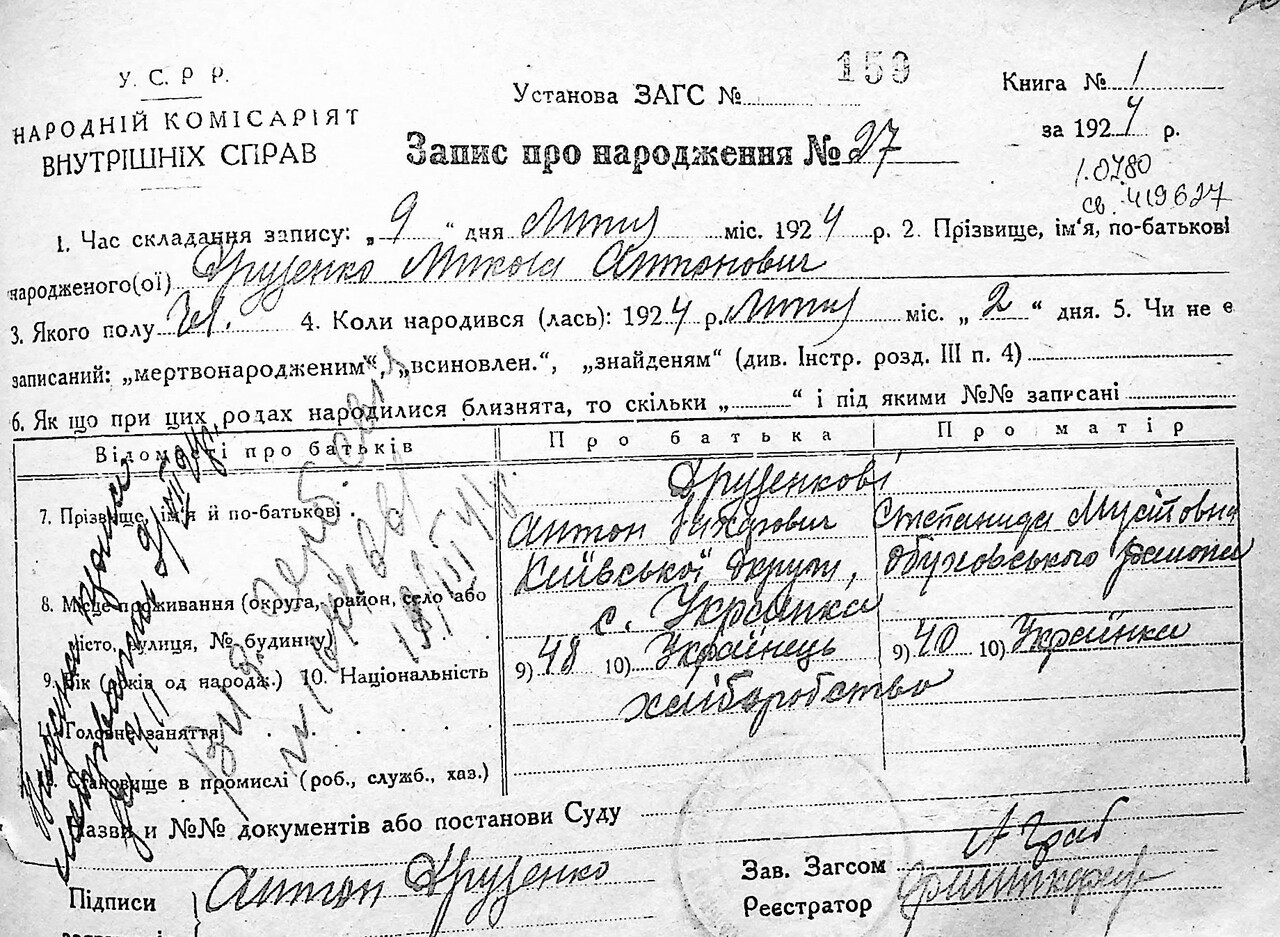 У. С. Р Р.
НАРОДНІЙ КОМІСАРІЯТ
ВНУТРІШНІХ СПРАВ
Установа ЗАГС № 159
Книга № 1
за 1924 р.
Запис про народження № 27
1.0780
св. 419627
1. Час складання запису: „ 9 “ дня Липня міс. 1924 р. 2. Прізвище, ім'я, по-батькові
народженого(ої) Друзенко Микола Антонович
3. Якого полу Чол. 4. Коли народився (лась): 1924 р. Липня міс. „ 2 “ дня. 5. Чи не є
записаний: „мертвонародженим“, „всиновлен.“, „знайденям“ (див. Інстр. розд. III п. 4)
6. Як що при цих родах народилися близнята, то скільки „ “ і під якими №№ записані
Відомості про батьків Про батька Про матір
Друзенкові
7. Прізвище, ім'я й по-батькові Антон Степанида
Київської округи, Обуховського району
8. Місце проживання (округа, район, село або с. Українка
місто, вулиця, № будинку)
9. Вік (років од народж.) 10. Національність 9) 48 10) Українець 9) 40 10) Українка
хліборобство
11. Головне заняття
Становище в промислі (роб., служб., хаз.)
Назви и №№ документів або постанови Суду
Підписи Антон Друзенко
Зав. Загсом
Реєстратор